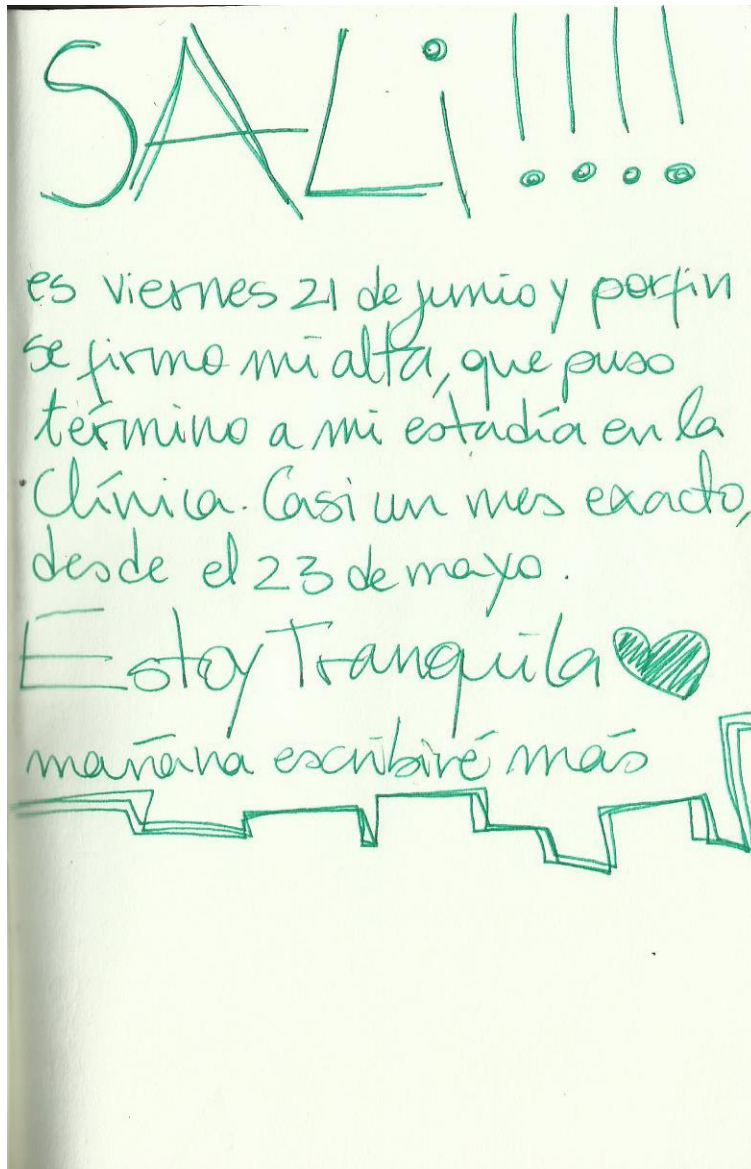 SALi!!!!
es viernes 21 de junio y porfin
se firmo mi alta, que puso
término a mi estadía en la
Clínica. Casi un mes exacto,
desde el 23 de mayo.
Estoy Tranquila
mañana escribiré más